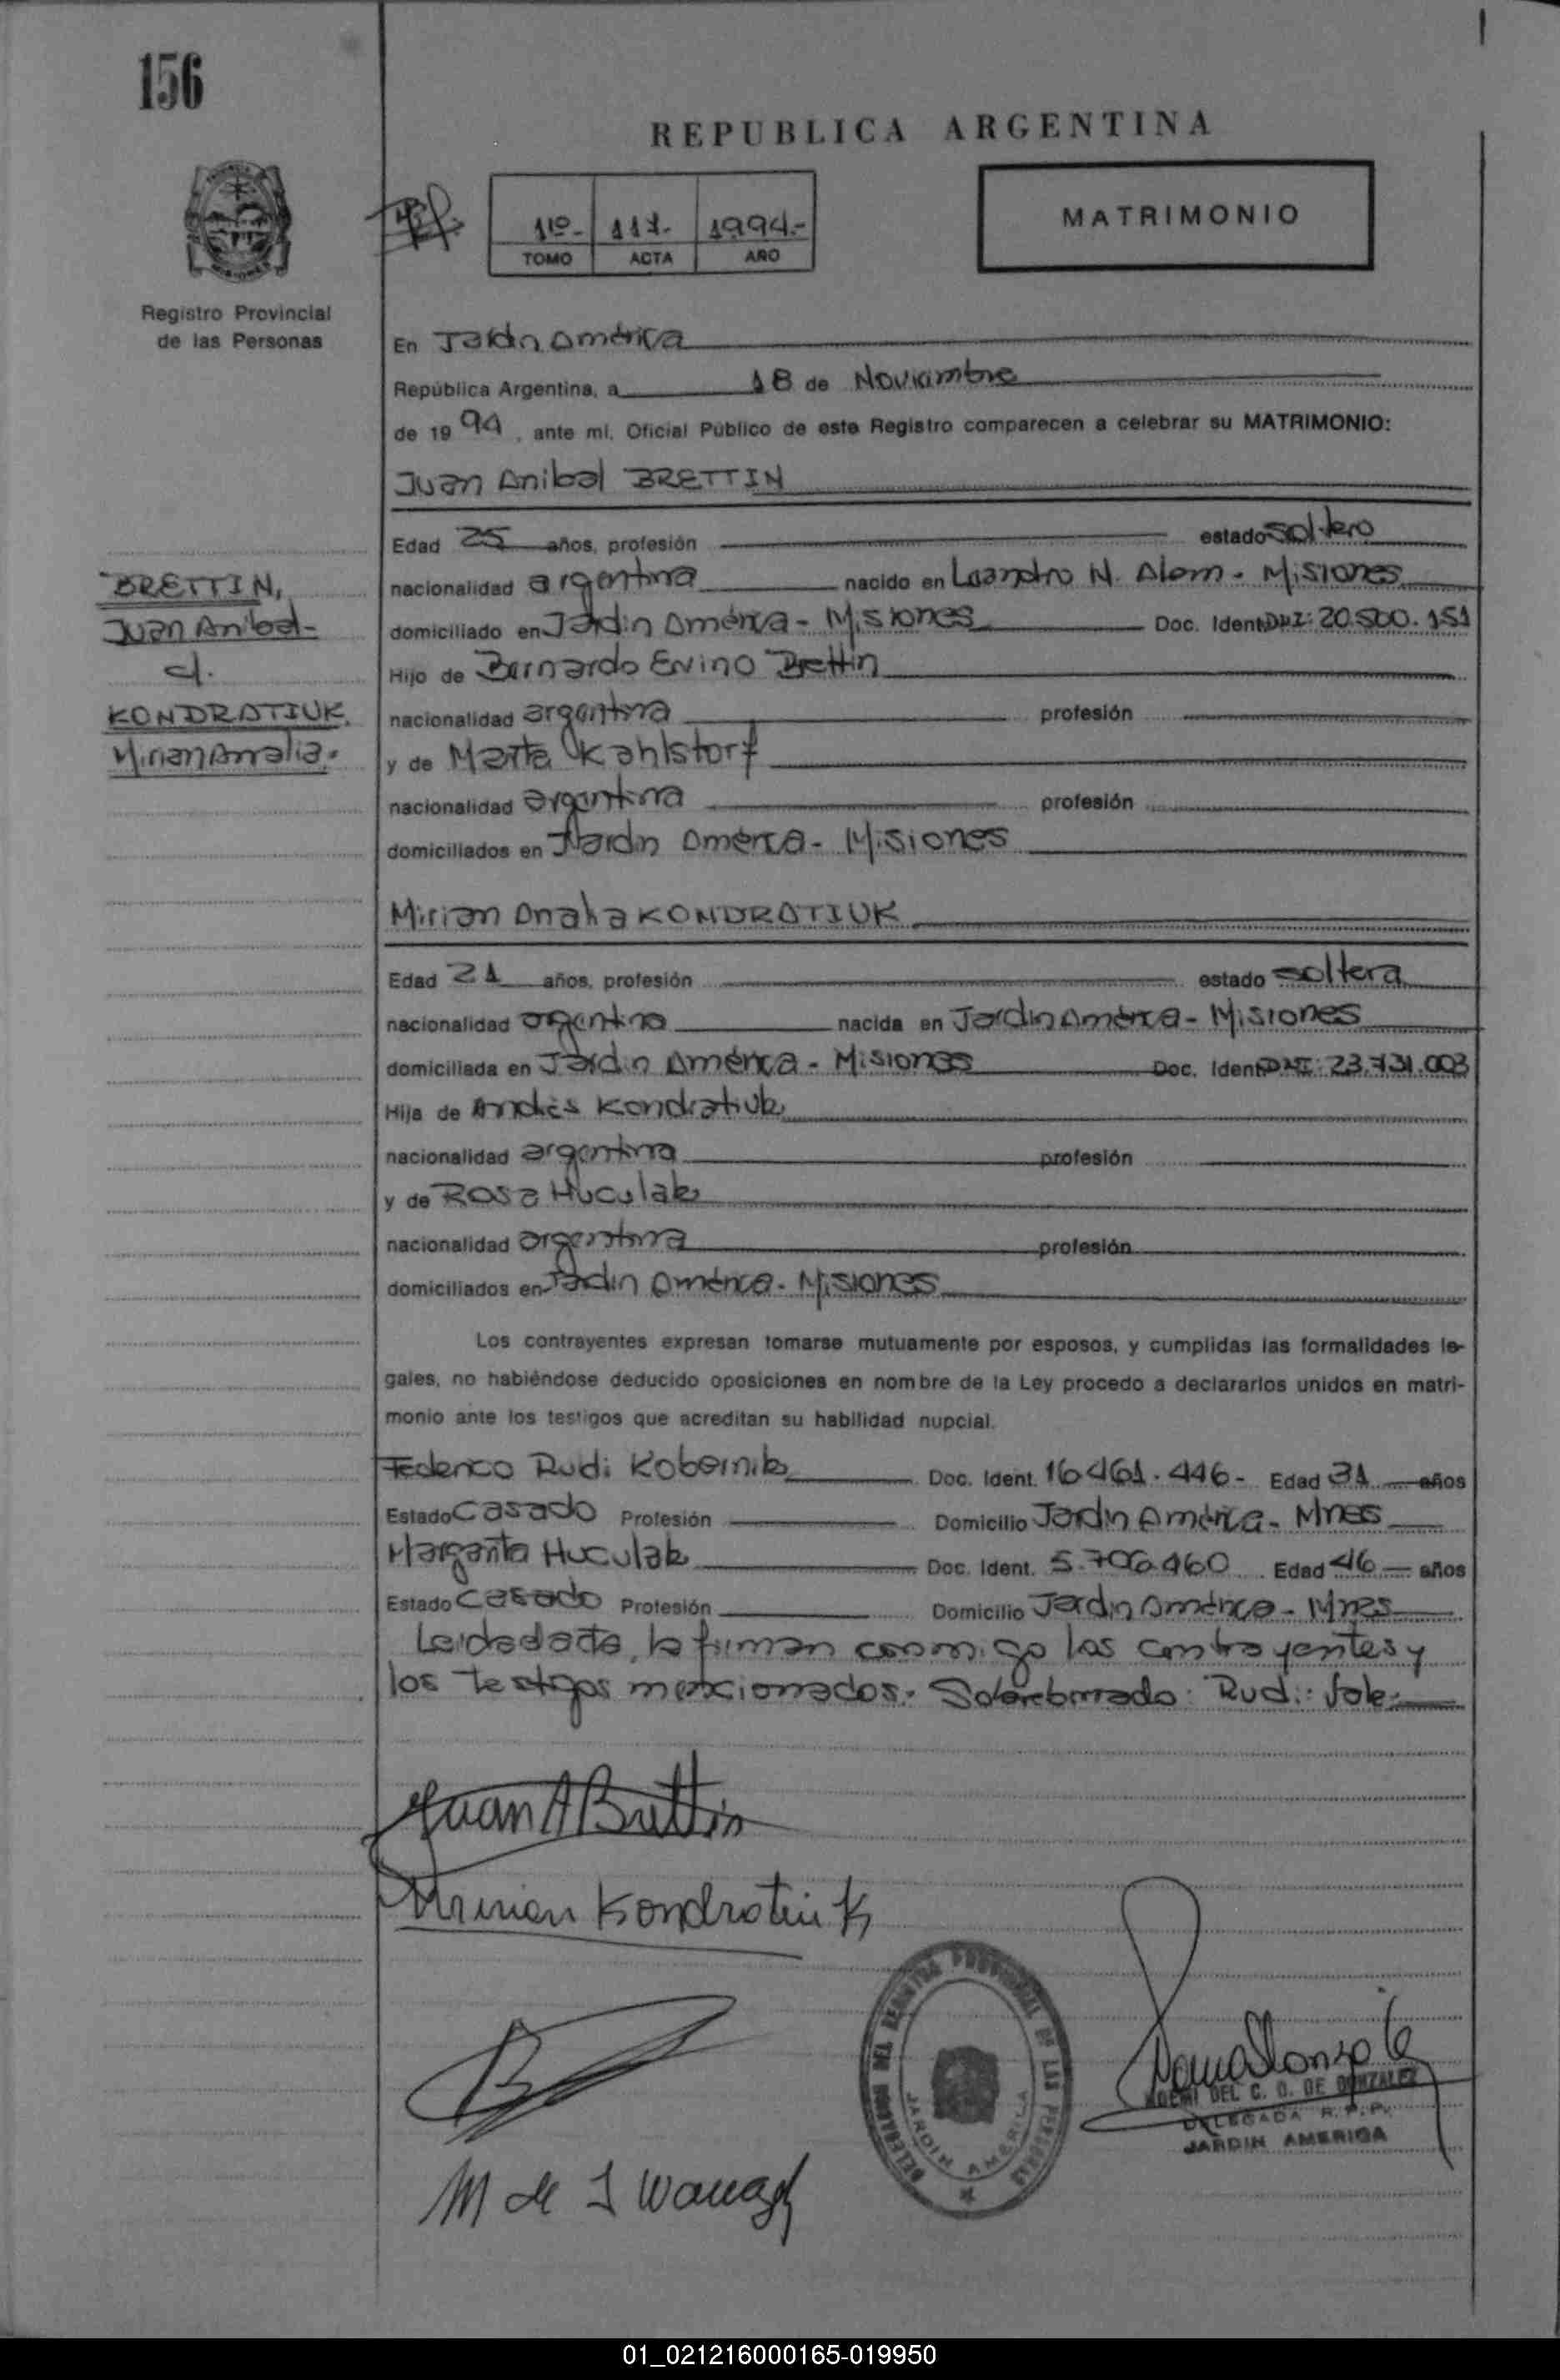 156
REPUBLICA ARGENTINA
1º- 117- 1994.-
TOMO ACTA AÑO
MATRIMONIO
Registro Provincial
de las Personas
En Jardín América
República Argentina, a 18 de Noviembre
de 1994, ante mí, Oficial Público de este Registro comparecen a celebrar su MATRIMONIO:
Juan Anibal BRETTIN
Edad 25 años, profesión estado soltero
BRETTIN,
Juan Anibal-
c/.
KONDRATIUK,
Mirian Analia.
nacionalidad argentina nacido en Leandro N. Alem - Misiones
domiciliado en Jardín América - Misiones Doc. Ident. DNI: 20.500.151
Hijo de Bernardo Ervino Brettin
nacionalidad argentina profesión
y de Marta Kahlstorf
nacionalidad argentina profesión
domiciliados en Jardín América - Misiones
Mirian Analia KONDRATIUK
Edad 21 años, profesión estado soltera
nacionalidad argentina nacida en Jardín América - Misiones
domiciliada en Jardín América - Misiones Doc. Ident. DNI: 23.731.003
Hija de Andrés Kondratiuk
nacionalidad argentina profesión
y de Rosa Huculak
nacionalidad argentina profesión
domiciliados en Jardín América - Misiones
Los contrayentes expresan tomarse mutuamente por esposos, y cumplidas las formalidades le-
gales, no habiéndose deducido oposiciones en nombre de la Ley procedo a declararlos unidos en matri-
monio ante los testigos que acreditan su habilidad nupcial.
Federico Rudi Kobernik Doc. Ident. 16.461.446- Edad 31 años
Estado casado Profesión Domicilio Jardín América - Mnes
Margarita Huculak Doc. Ident. 5.706.460 Edad 46 años
Estado casado Profesión Domicilio Jardín América - Mnes
Leida el acta, la firman conmigo los contrayentes y
los testigos mencionados. Sobreborrado: Rudi: Vale.
Juan A Brettin
Mirian Kondratiuk
M de Iwanag
DELEGADA DEL REGISTRO PROVINCIAL DE LAS PERSONAS
JARDIN AMERICA
NOEMI DEL C. O. DE GONZALEZ
DELEGADA R.P.P.
JARDIN AMERICA
01_021216000165-019950